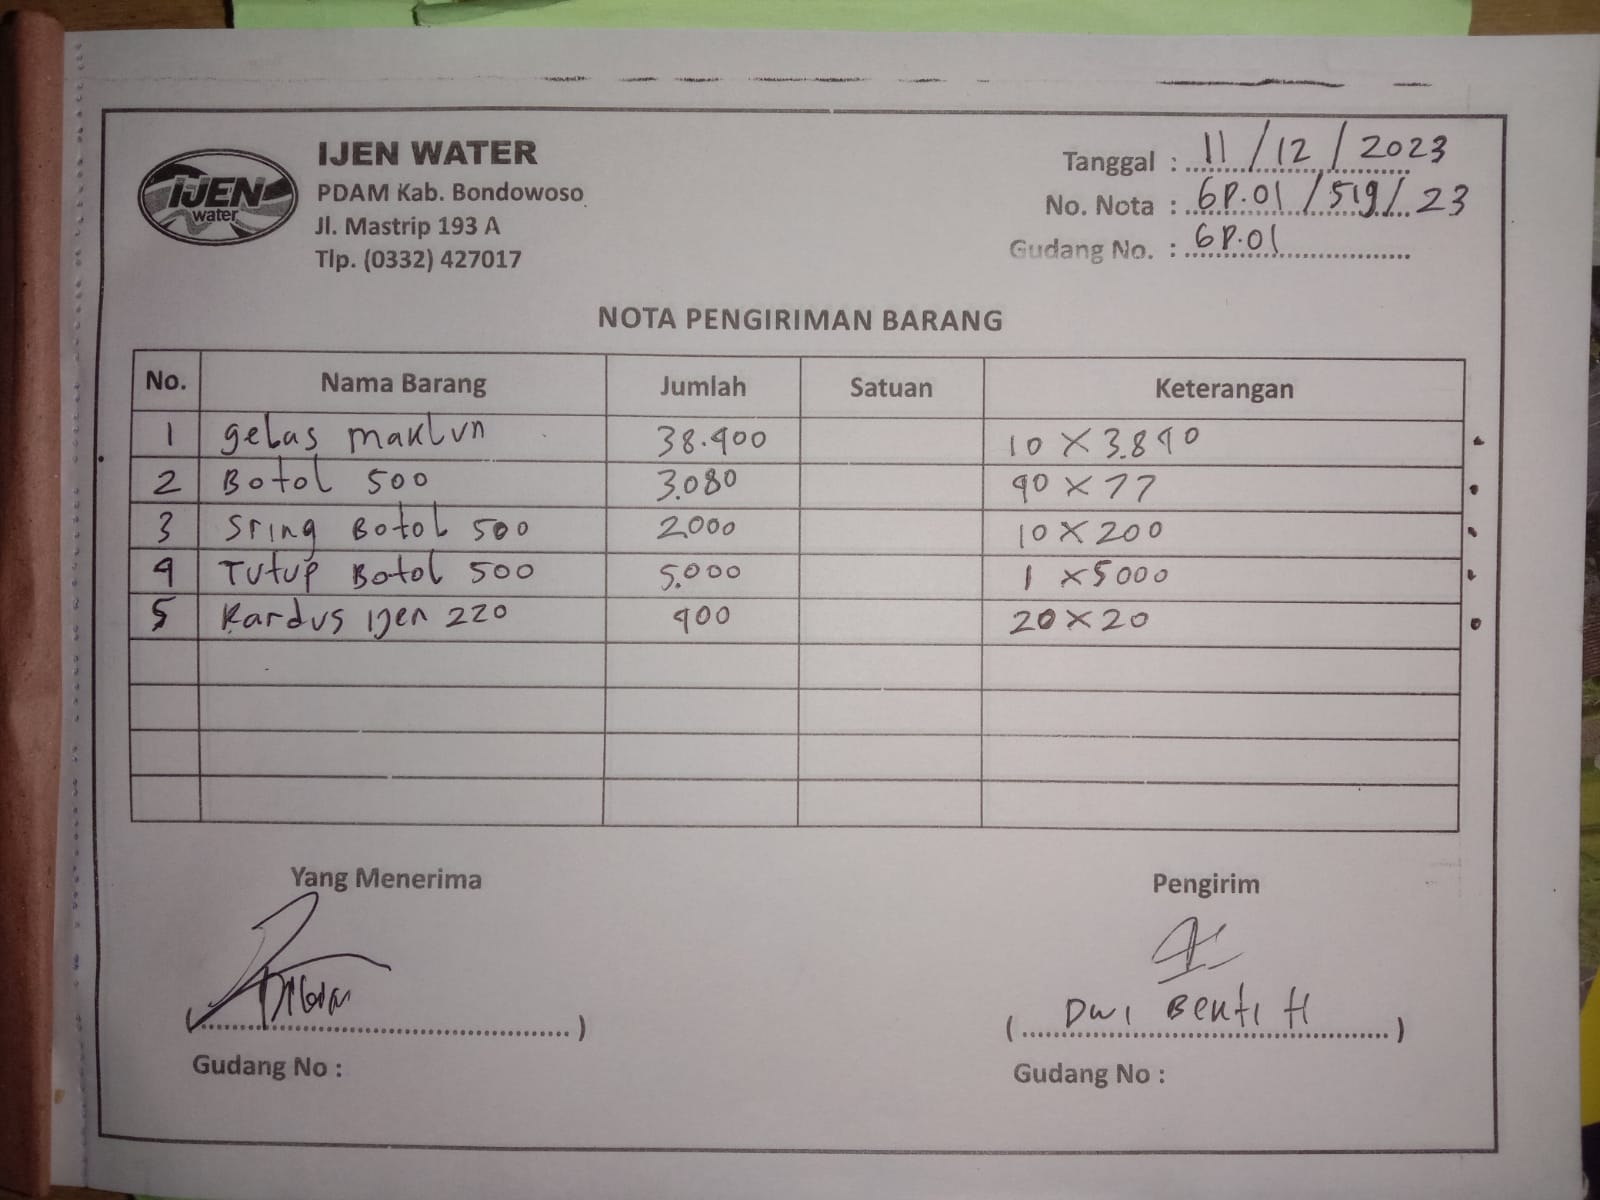 IJEN water
IJEN WATER
PDAM Kab. Bondowoso
Jl. Mastrip 193 A
Tlp. (0332) 427017
Tanggal : 11/12/2023
No. Nota : GP.01/519/23
Gudang No. : GP.01
NOTA PENGIRIMAN BARANG
No. Nama Barang Jumlah Satuan Keterangan
1 gelas maklun 38.400 10 X 3.840
2 Botol 500 3.080 40 X 77
3 Sring Botol 500 2000 10 X 200
4 Tutup Botol 500 5.000 1 X 5000
5 Kardus Ijen 220 400 20 X 20
Yang Menerima
Pengirim
(Dwi Bekti H)
Gudang No :
Gudang No :